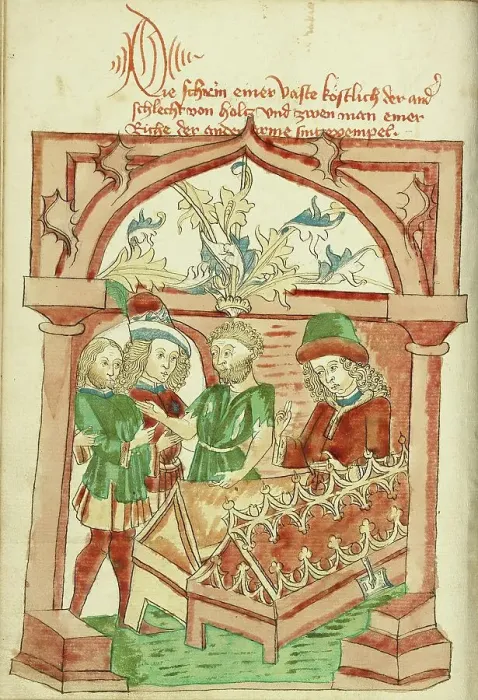 Die schrin einer vaste köstlich der and̕
schlecht von holtz vnd zwen man einer
Riche der ander arme sint wempel.